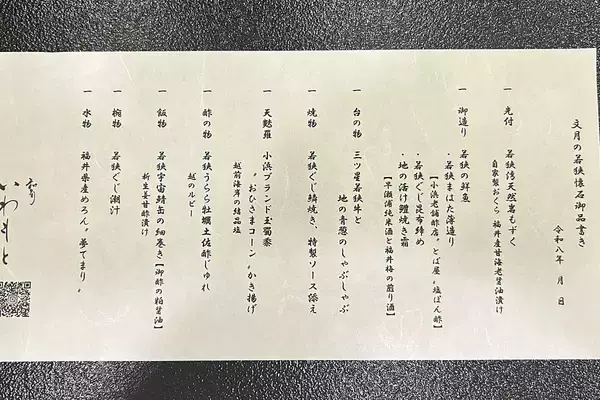 文月の若狭懐石御品書き
令和八年 月 日
一 先付 若狭湾天然岩もずく
自家製おくら 福井産甘海老醤油漬け
一 御造り 若狭の鮮魚
・若狭まはた薄造り
【小浜老舗酢店〝とば屋〟塩ぽん酢】
・若狭ぐじ昆布締め
・地の活け鱧焼き霜
【早瀬浦純米酒と福井梅の煎り酒】
一 台の物 三ツ星若狭牛と
地の青葱のしゃぶしゃぶ
一 焼物 若狭ぐじ鱗焼き、特製ソース添え
一 天麩羅 小浜ブランド玉蜀黍
〝おひさまコーン〟かき揚げ
越前海岸の結晶塩
一 酢の物 若狭うらら牡蠣土佐酢じゅれ
越のルビー
一 飯物 若狭宇宙鯖缶の細巻き【御酢の粕醤油】
新生姜甘酢漬け
一 椀物 若狭ぐじ潮汁
一 水物 福井県産めろん〝夢てまり〟